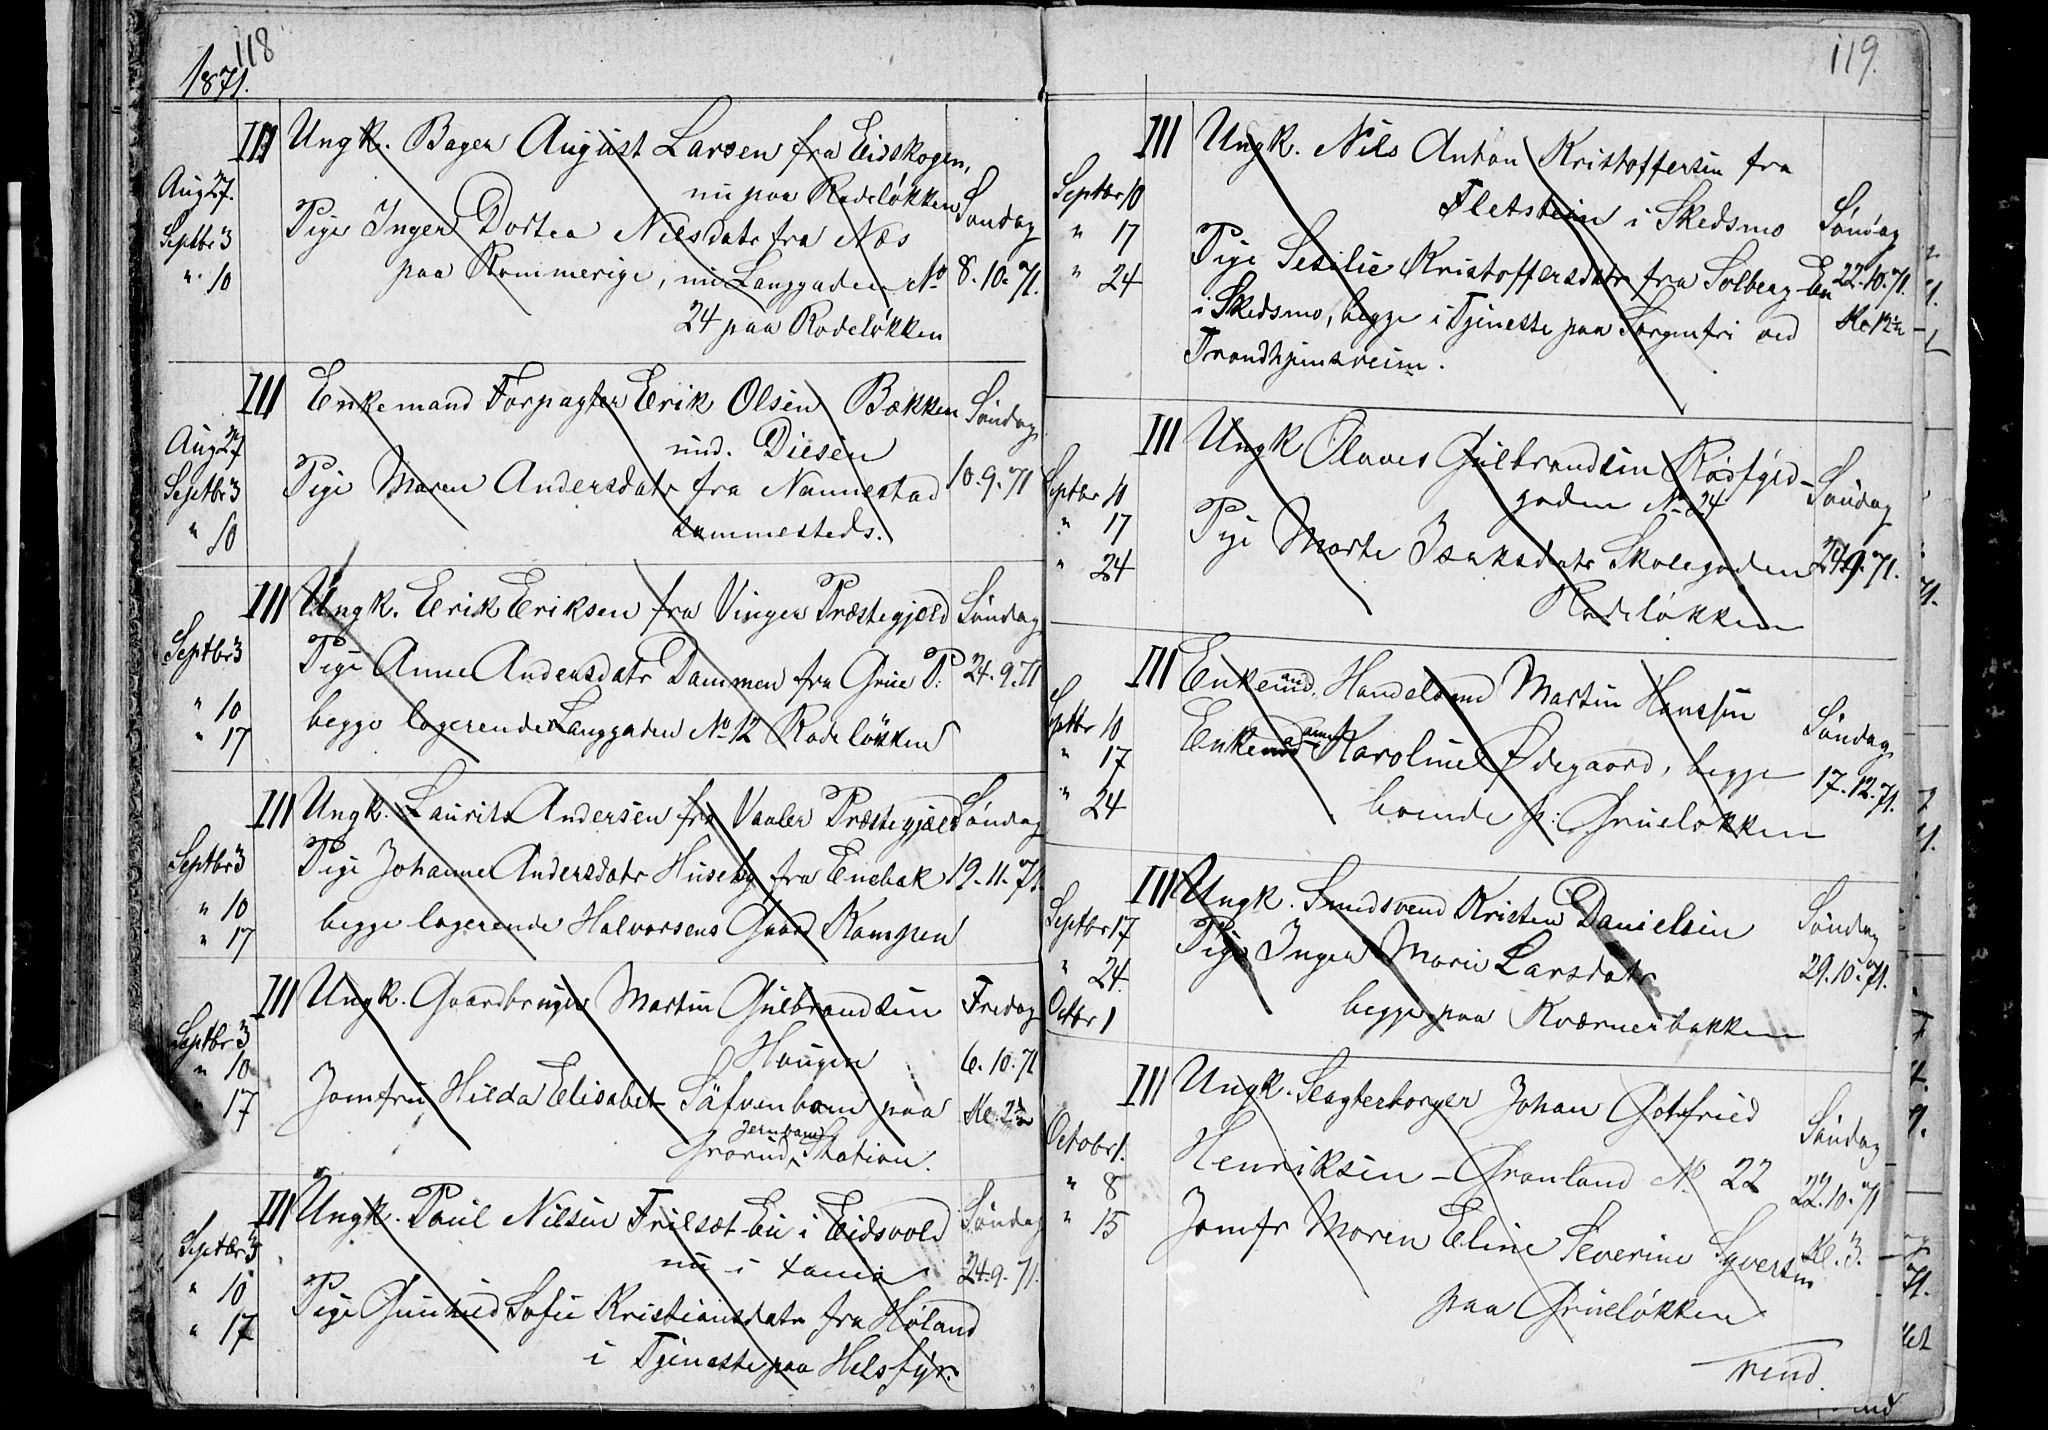 118
1871.
III Ungk. Bager August Larsen fra Eidskogen,
nu paa Rodeløkken
Aug 27.
Septbr 3
" 10
Pige Inger Dortea Nilsdatr fra Næs
paa Rommerige, nu Langgaden No
24 paa Rodeløkken
Søndag
8.10.71.
III Enkemand Forpagter Erik Olsen Bækken
nud. Diesen
Aug 27
Septbr 3
" 10
Pige Maren Andersdatr fra Nannestad
sammesteds.
Søndag
10.9.71
III Ungk. Erik Eriksen fra Vinger Præstegjæld
Septbr 3
" 10
" 17
Pige Anne Andersdatr Dammen fra Grue P:
begge logerende Langgaden No 12 Rodeløkken
Søndag
24.9.71
III Ungk. Laurits Andersen fra Vaaler Præstegjæld
Septbr 3
" 10
" 17
Pige Johanne Andersdatr Huseby fra Enebak
begge logerende Halvorsens Gaard Kampen
Søndag
19.11.71.
III Ungk. Gaardbruger Martin Gulbrandsen
Haugen
Septbr 3
" 10
" 17
Jomfru Hilda Elisabet Säfvenbom paa
Jernban
Grorud Station.
Fredag
6.10.71
Kl. 2½
III Ungk. Paul Nilsen Frilset-Ei i Eidsvold
nu i
Septbr 3
" 10
" 17
Pige Gunhild Sofie Kristiansdatr fra Høland
i Tjeneste paa Helsfyr.
Søndag
24.9.71.
119.
III Ungk. Nils Anton Kristoffersen fra
Fletstein i Skedsmo
Septbr 10
" 17
" 24
Pige Sesilie Kristoffersdatr fra Solberg-Ein
i Skedsmo, begge i Tjeneste paa Sorgenfri ved
Trondhjemsveien.
Søndag
22.10.71.
Kl 12½
III Ungk Olaves Gulbrandsen Rødfyld-
gaden No 24
Septbr 10
" 17
" 24
Pige Marte Isaksdatr Skolegaden
Rodeløkken
Søndag
24.9.71.
III Enkemand, Handelsmd Martin Hanssen
Septbr 10
" 17
" 24
Enkemadamme Karoline Ødegaard, begge
boende p: Grueløkken
Søndag
17.12.71.
III Ungk. Smedsvend Kristen Danielsen
Septbr 17
" 24
Octbr 1
Pige Inger Marie Larsdatr
begge paa Kværnerbakken
Søndag
29.10.71.
III Ungk. Slagterborger Johan Gotfried
Henriksen - Grønland No 22
Octobr 1.
" 8
" 15
Jomfr Maren Eline Severine Syversen
paa Grueløkken
Søndag
22.10.71
Kl. 3.
vend.